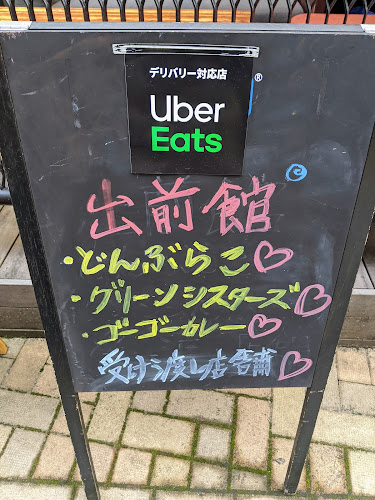 デリバリー対応店
Uber
Eats
®
出前館
・どんぶらこ♡
・グリーンシスターズ♡
・ゴーゴーカレー♡
受け渡し店舗♡